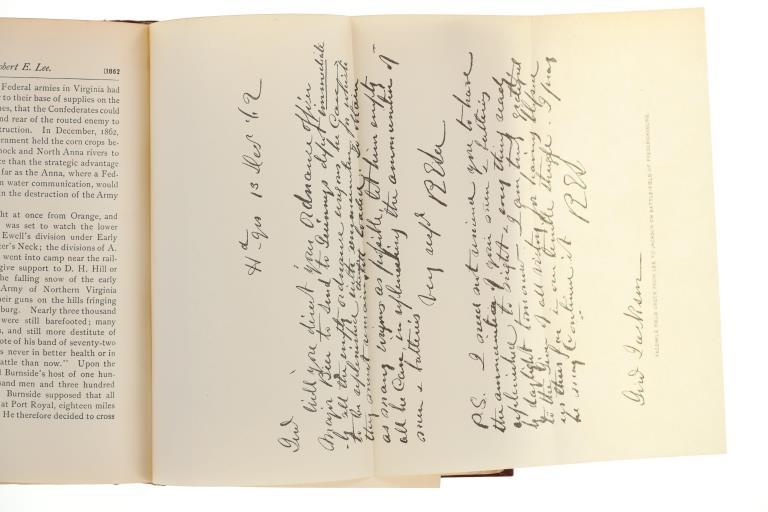 obert E. Lee. [1862
Federal armies in Virginia had
to their base of supplies on the
es, that the Confederates could
nd rear of the routed enemy to
truction. In December, 1862,
ernment held the corn crops be-
nock and North Anna rivers to
ce than the strategic advantage
far as the Anna, where a Fed-
n water communication, would
n the destruction of the Army
ht at once from Orange, and
was set to watch the lower
Ewell's division under Early
er's Neck; the divisions of A.
went into camp near the rail-
give support to D. H. Hill or
he falling snow of the early
Army of Northern Virginia
heir guns on the hills fringing
burg. Nearly three thousand
were still barefooted; many
s, and still more destitute of
ote of his band of seventy-two
s never in better health or in
attle than now." Upon the
d Burnside's host of one hun-
sand men and three hundred
Burnside supposed that all
at Port Royal, eighteen miles
He therefore decided to cross
Hd Qrs 13 Decr '62
Genl
Will you direct your Ordnance officer
Major Bier to send to Guinneys depot immediately
all the empty ordnance wagons he can
to be replenished with ammunition, for which
as many wagons as possible, let him empty
all he can, in replenishing the ammunition of
men & batteries
Very respy R E Lee
P.S. I need not remind you to have
the ammunition of your men & batteries
replenished to night & every thing ready
by daylight tomorrow. I am truly grateful
to the Giver of all victory for having blessed
us thus far in our terrible struggle. I pray
he may continue it R E L
Genl Jackson
FACSIMILE FIELD ORDER FROM LEE TO JACKSON ON BATTLE-FIELD OF FREDERICKSBURG.